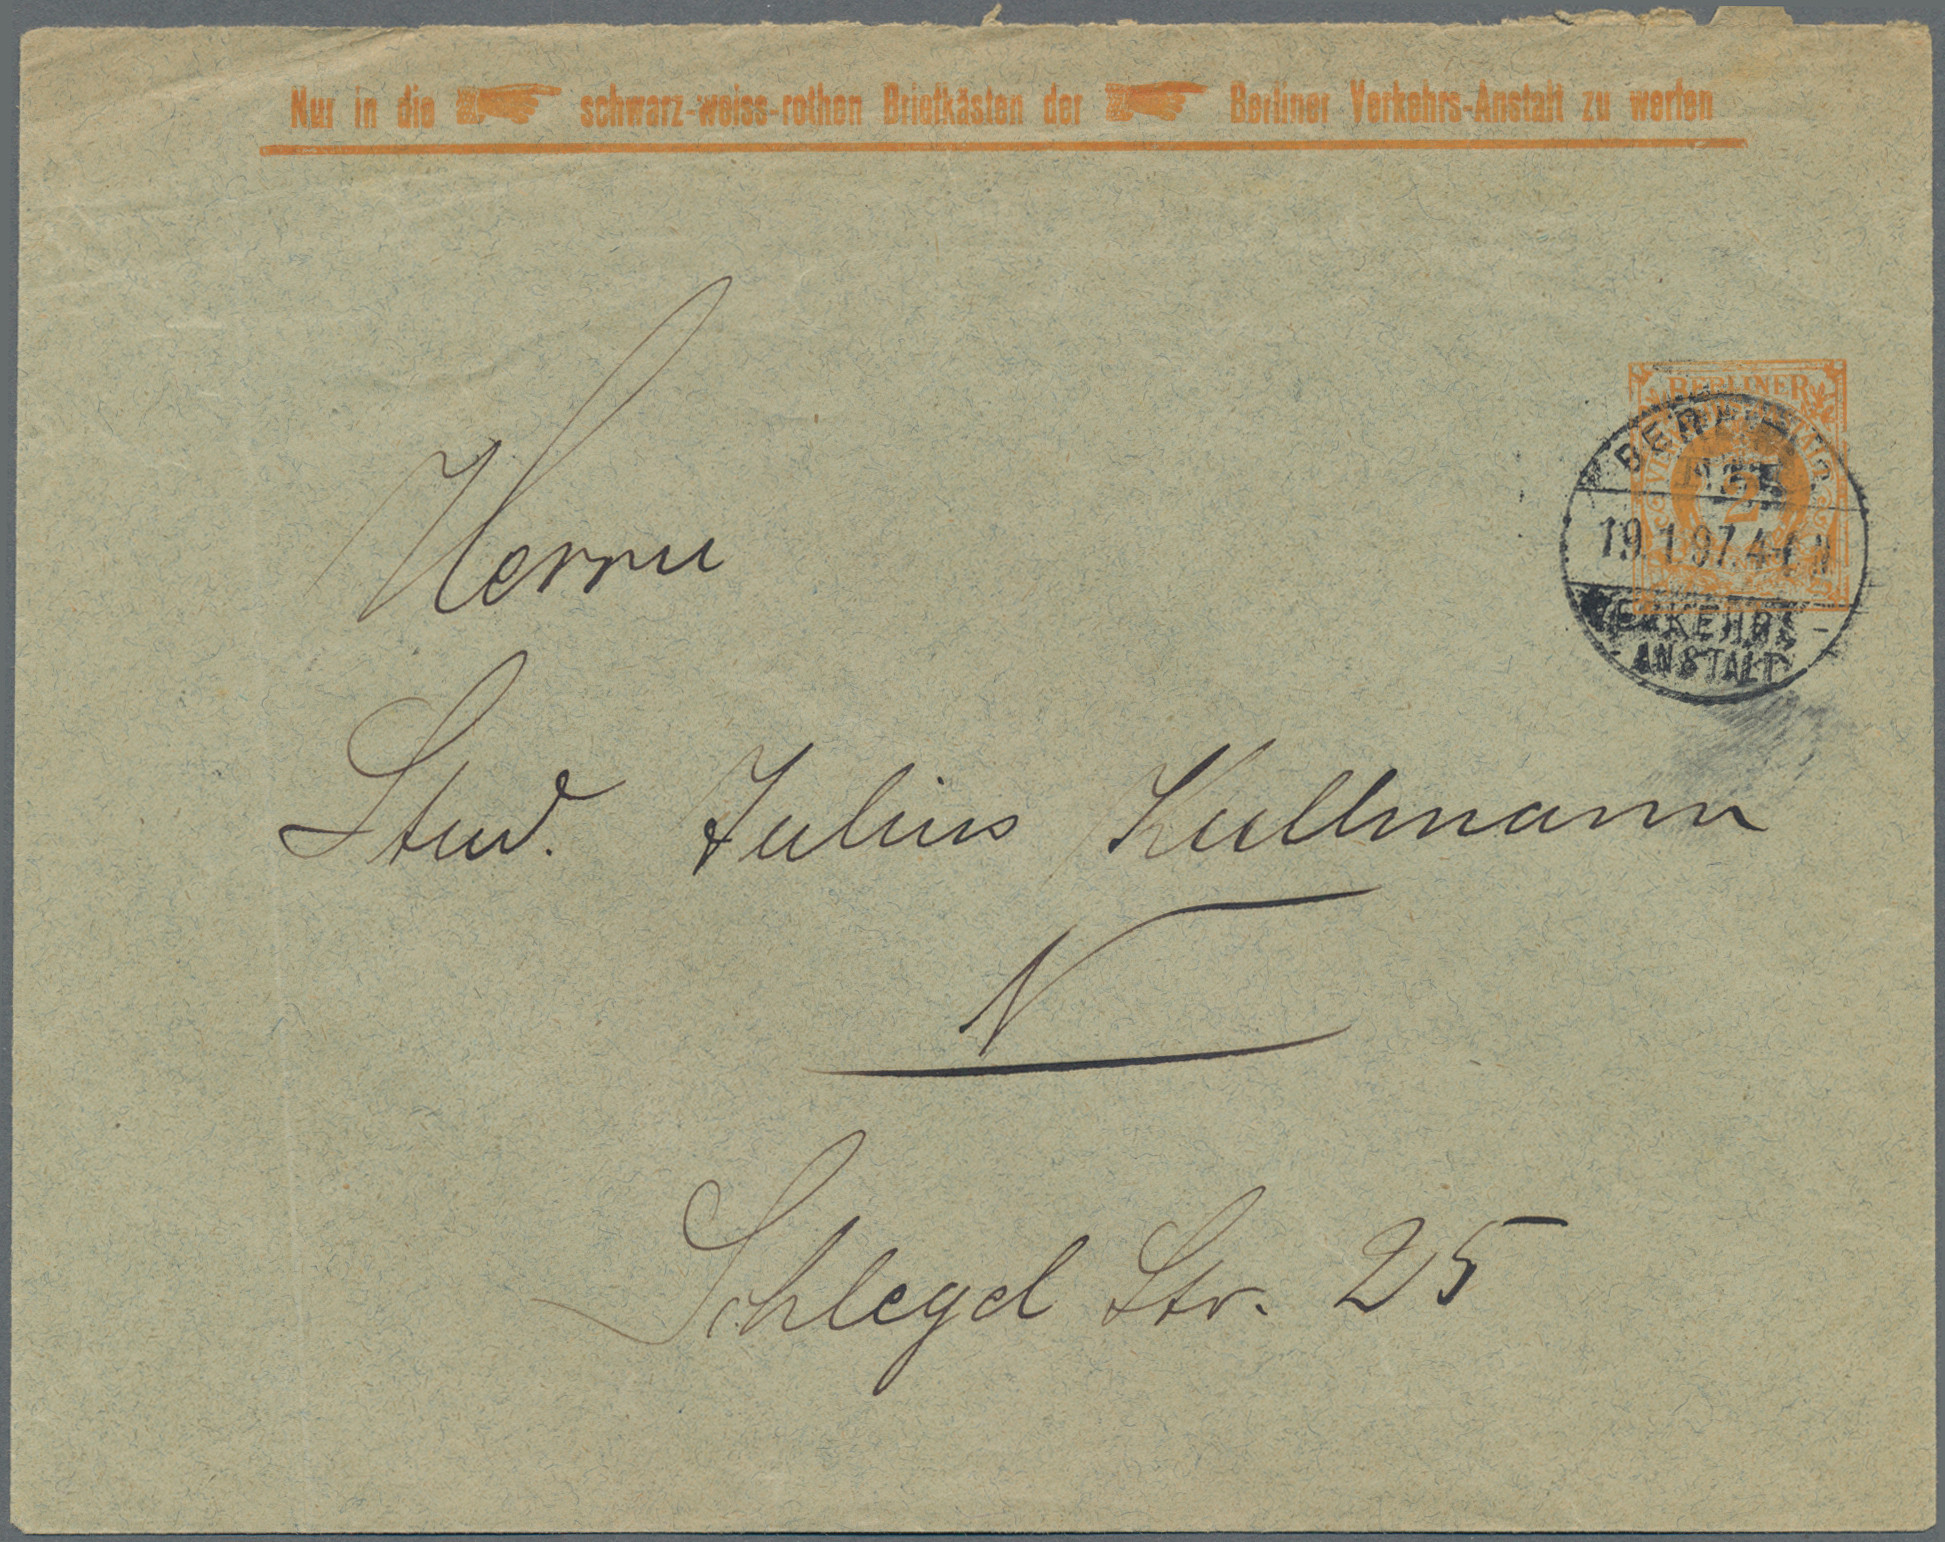 Nur in die schwarz-weiss-rothen Briefkästen der Berliner Verkehrs-Anstalt zu werfen
BERLINER
2
19.1.97.4-
VERKEHRS-
ANSTALT
Herrn
Stud. Julius Kullmann
N
Schlegel Str. 25